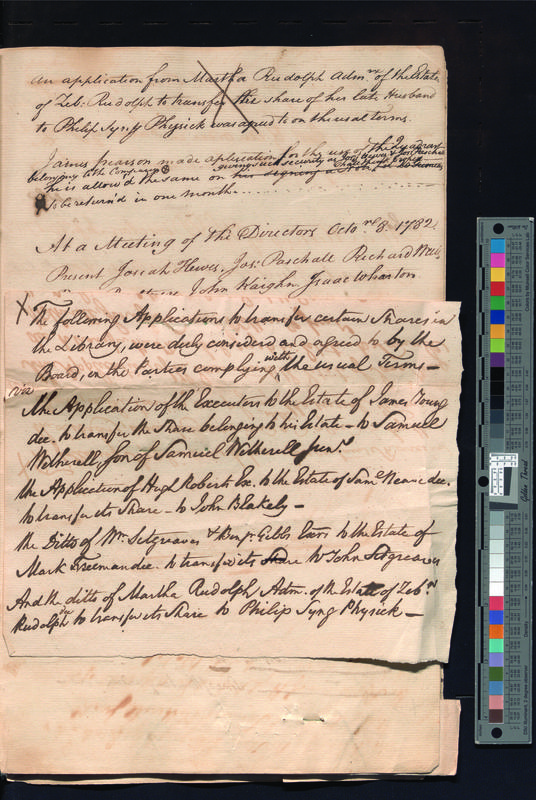 An application from Martha Rudolph Adm.rx of the Estate
of Zeb: Rudolph to transfer the share of her late Husband
to Philip Syng Physick was agreed to on the usual terms.
James Pearson made application for the use of the Quadrant
belonging to the Company
giving such security as Jos: Hewes & Jos: Paschall
he is allowed the same on his signing a
to be return'd in one month
At a Meeting of the Directors Octo.r 8. 1782.
Present Josiah Hewes, Jos: Paschall Richard Wells,
John Kaighn Isaac Wharton
X The following Applications to transfer certain Shares in
the Library, were duly considered and agreed to by the
Board, on the Parties complying with the usual Terms —
viz
the Application of the Executors to the Estate of James Young
dec. to transfer the Share belonging to his Estate — to Samuel
Wetherell, son of Samuel Wetherell Jun.r
the Application of Hugh Roberts Ex. to the Estate of Sam.l Neave dec.
to transfer its Share — to John Blakely —
the Ditto of Wm. Setgreaves & Benj.n Gibbs Exors to the Estate of
Mark Freeman dec. to transfer its Share to John Setgreaves
And the ditto of Martha Rudolph Adm. of the Estate of Zeb.n
Rudolph dec to transfer its Share to Philip Syng Physick —